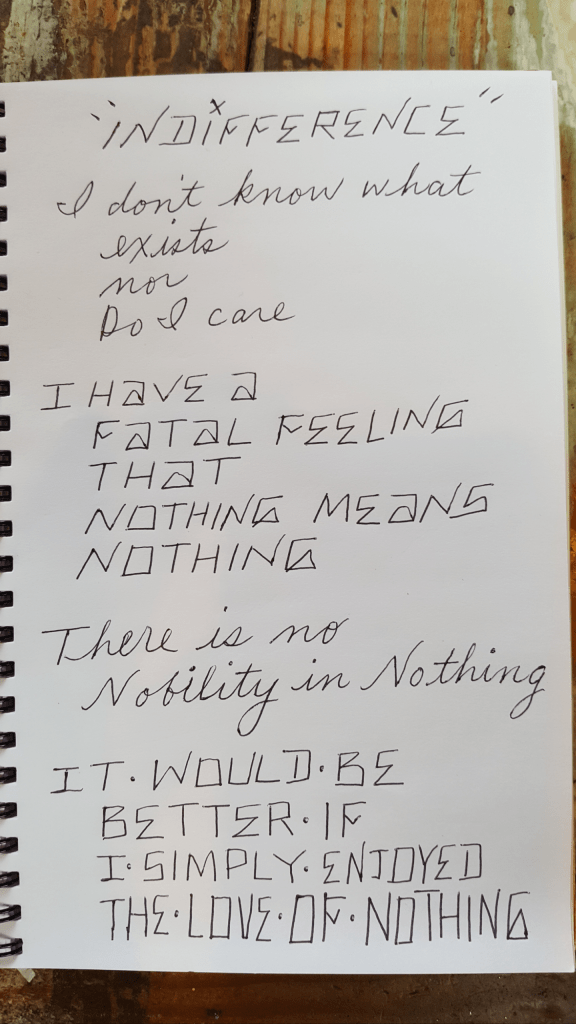 "INDIFFERENCE"
I don't know what
exists
nor
Do I care
I HAVE A
FATAL FEELING
THAT
NOTHING MEANS
NOTHING
There is no
Nobility in Nothing
IT·WOULD·BE
BETTER·IF
I·SIMPLY·ENJOYED
THE·LOVE·OF·NOTHING